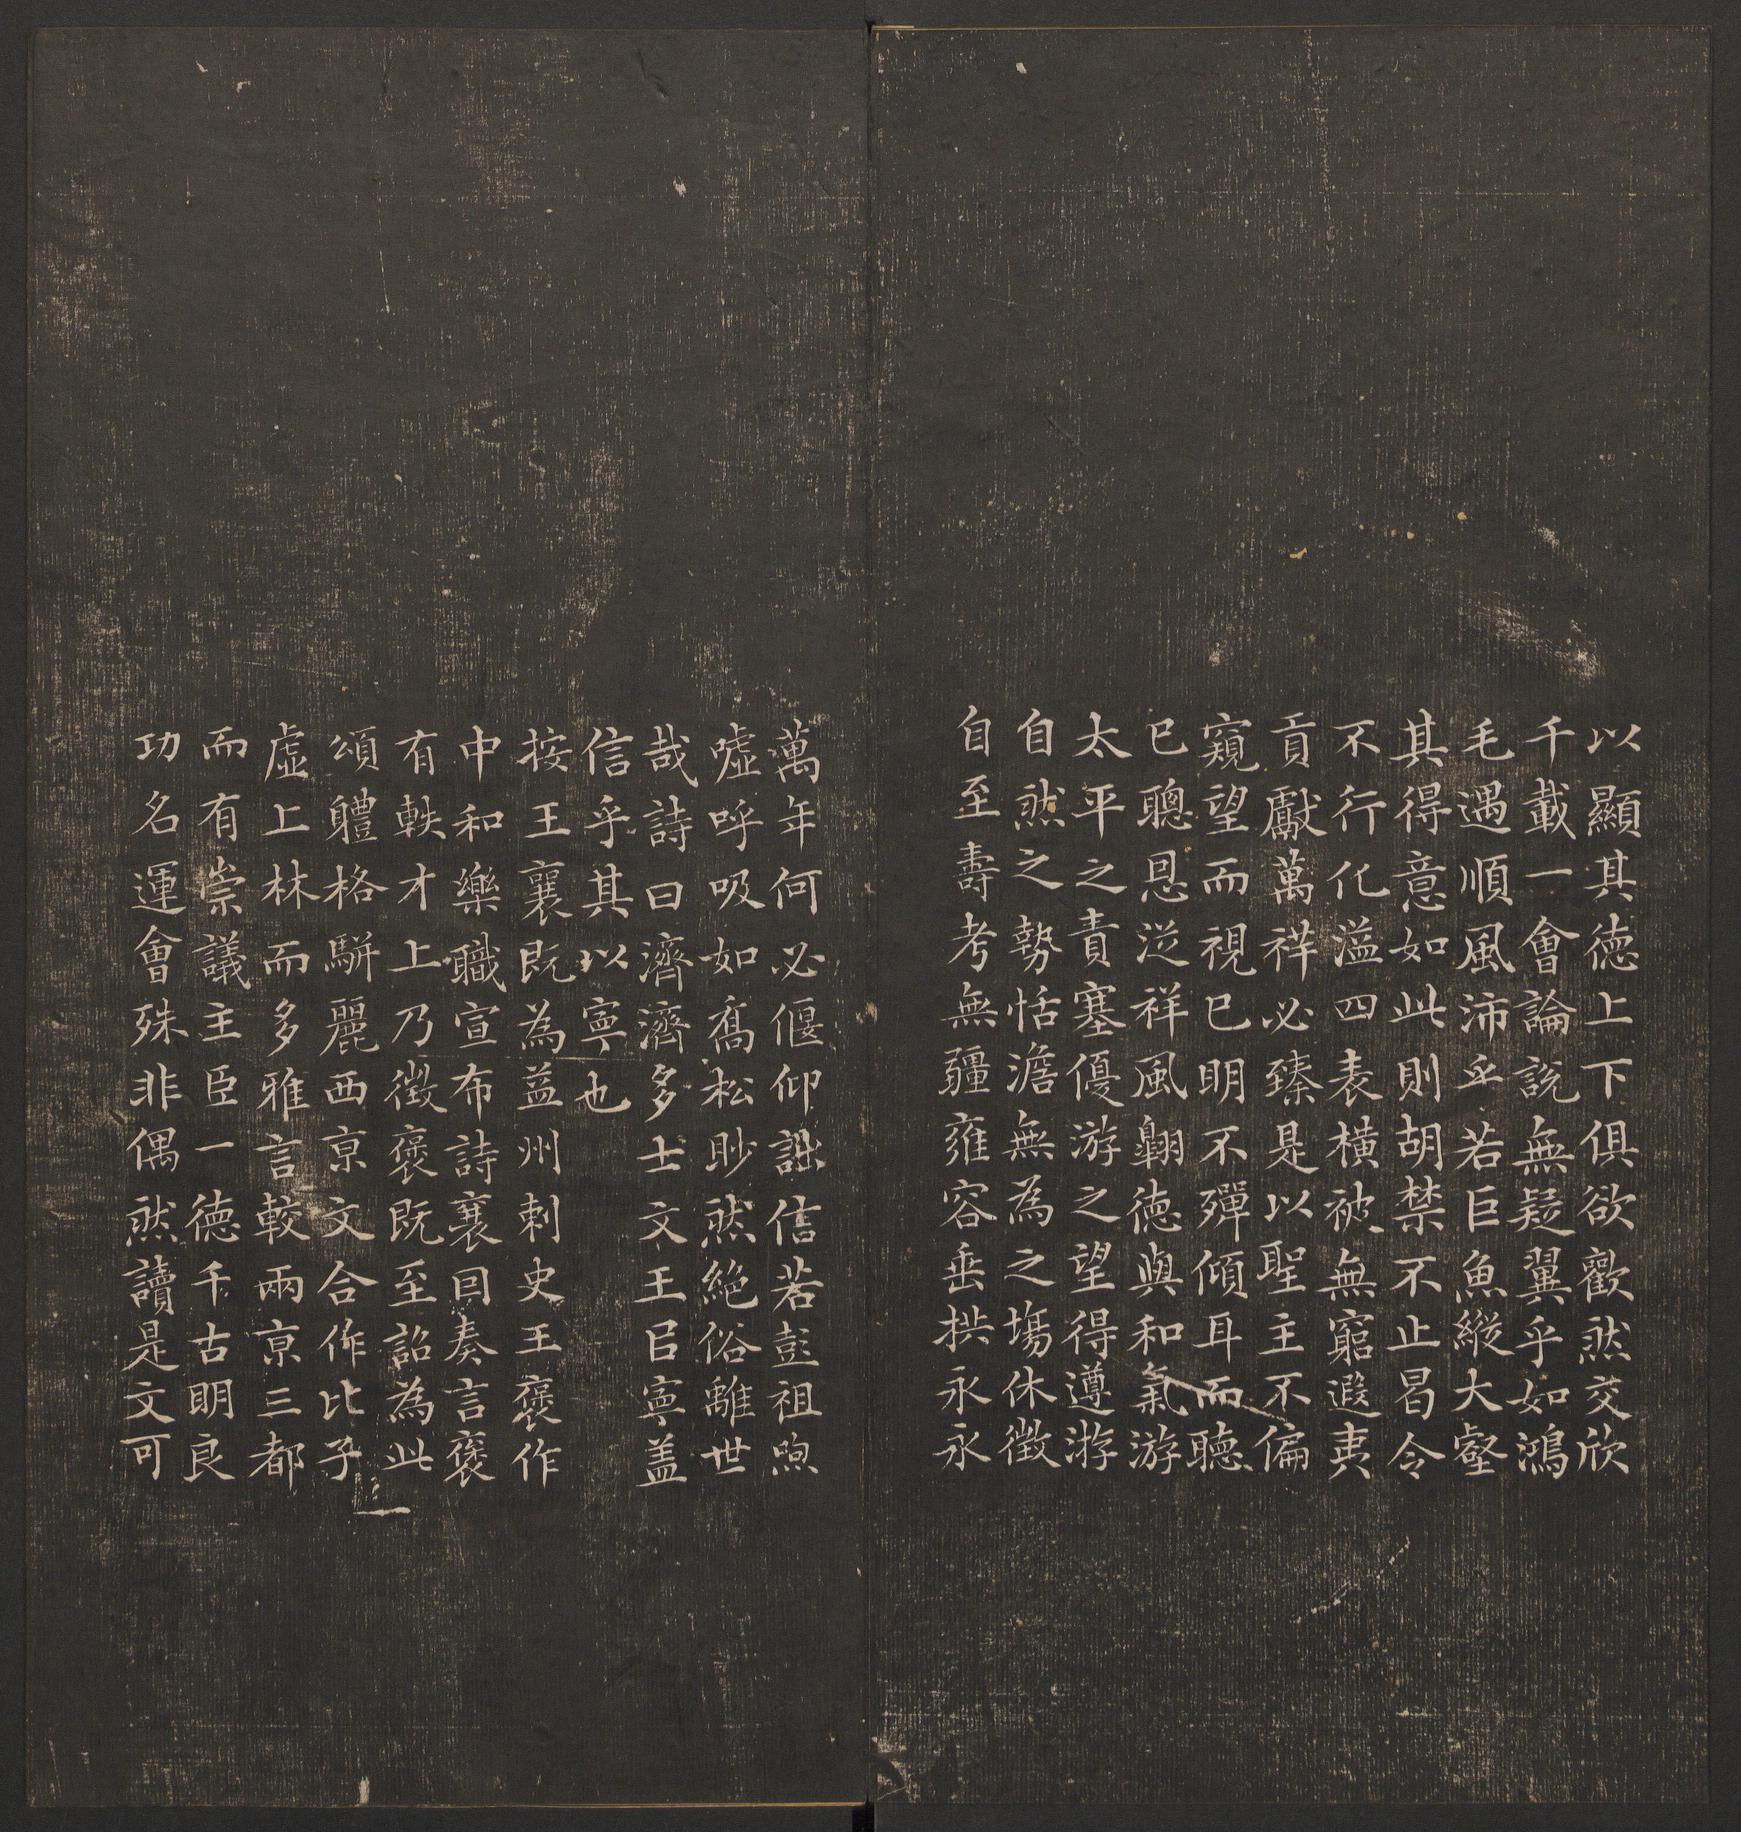 以顯其徳上下俱欲歡然交欣
千載一會論說無疑翼乎如鴻
毛遇順風沛乎若巨魚縱大壑
其得意如此則胡禁不止曷令
不行化溢四表橫被無窮遐夷
貢獻萬祥必臻是以聖主不偏
窺望而視已明不殫傾耳而聽
已聰恩從祥風翺徳與和氣游
太平之責塞優游之望得遵游
自然之勢恬澹無為之場休徵
自至壽考無疆雍容垂拱永永
萬年何必偃仰詘信若彭祖呴
噓呼吸如喬松眇然絕俗離世
哉詩曰濟濟多士文王㠯寧蓋
信乎其以寧也
按王襄既為益州刺史王褒作
中和樂職宣布詩襄回奏言褒
有軼才上乃徵褒既至詔為此
頌軆格駢麗西京文合作比子
虛上林而多雅言較兩京三都
而有崇議主臣一徳千古明良
功名運會殊非偶然讀是文可